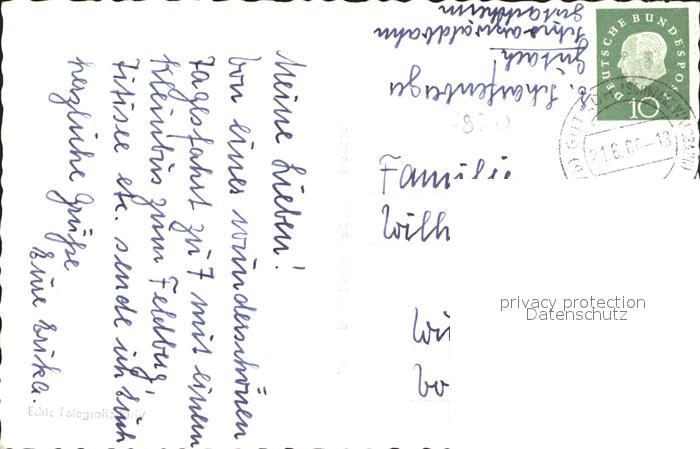 Meine Lieben!
Von einer wunderschönen
Tagesfahrt zu 7 mit einem
Kleinbus zum Feldberg,
Titisee etc. sende ich Euch
herzliche Grüße
Eure Erika.
Gutach
Schwarzwaldbahn
Familie
Wilh
DEUTSCHE BUNDESPOST
10
GUTACH (SCHWARZWALDBAHN)
21.6.60-18
privacy protection
Datenschutz
Echte Fotografie